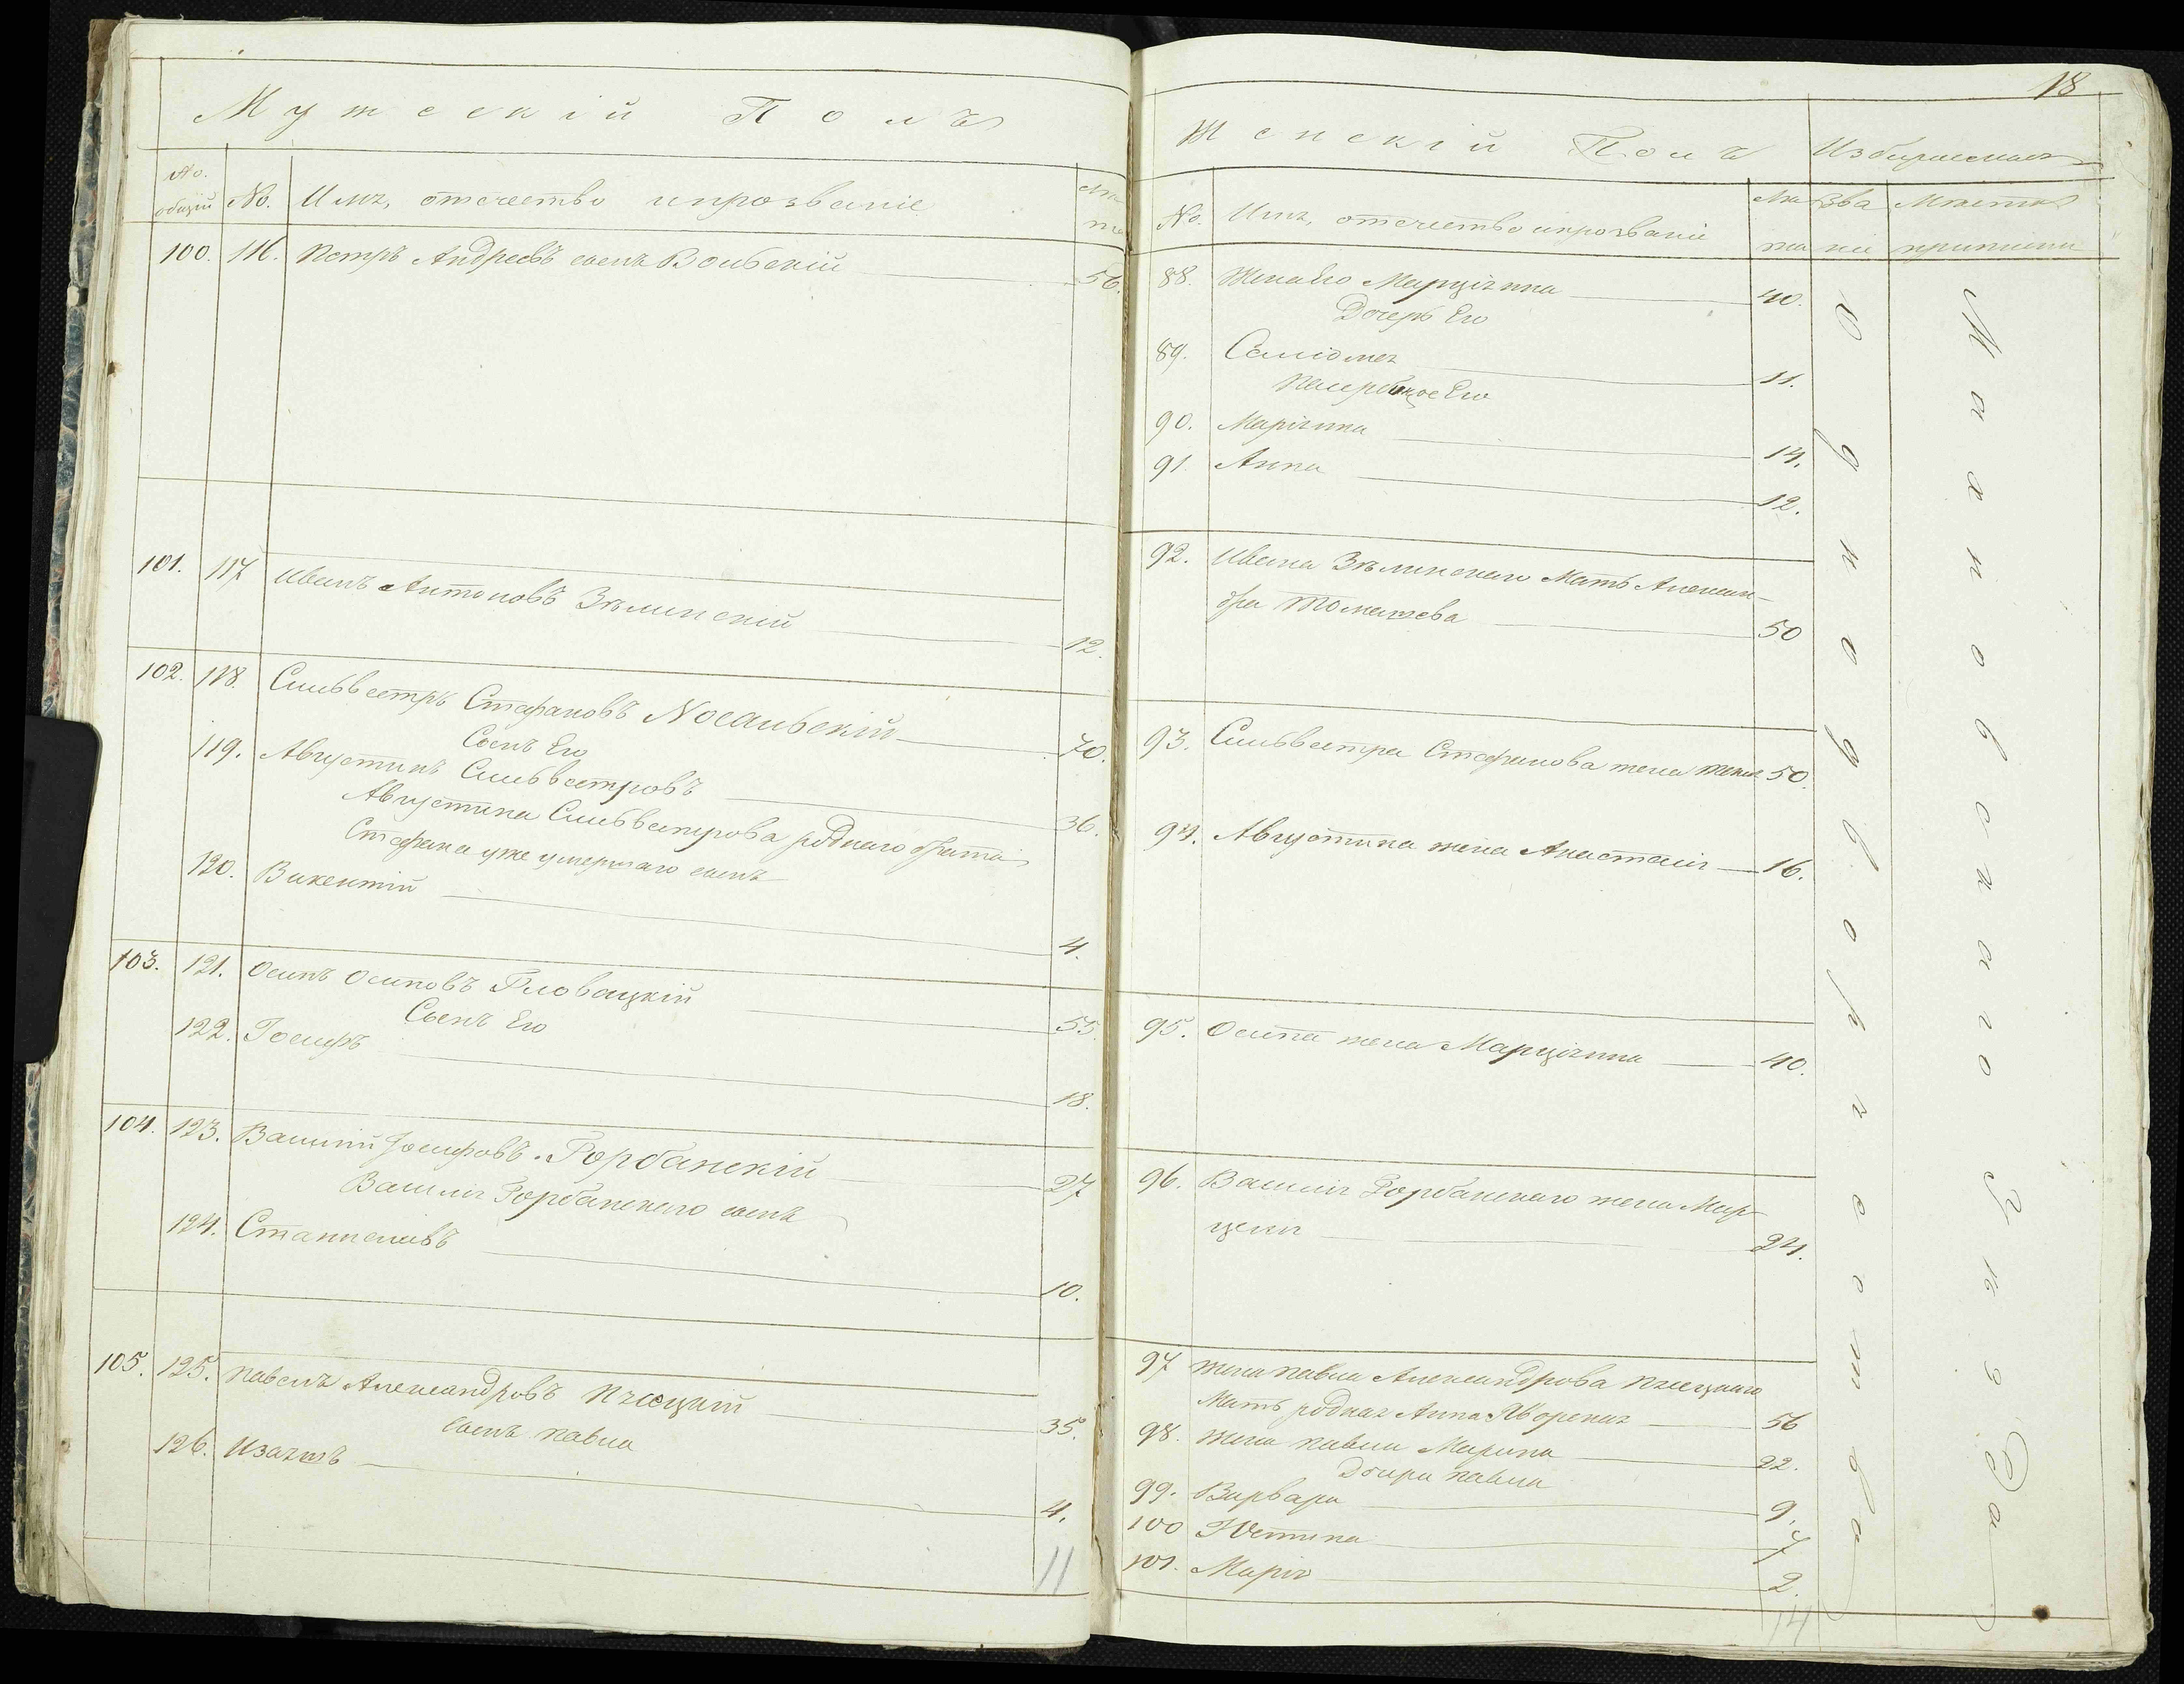 Мужескій Полъ
No. общій No. Имя, отчество и прозваніе Лѣта
100. 116. Петръ Андреевъ сынъ Вольскій 56.
101. 117 Иванъ Антоновъ Зѣлинскій 12.
102. 118. Сильвестръ Стефановъ Носальскій 70.
Сынъ Его
119. Августинъ Сильвестровъ 36.
Августина Сильвестрова роднаго брата
Стефана уже умершаго сынъ
120. Викентій 4.
103. 121. Осипъ Осиповъ Гловацкій 55.
Сынъ Его
122. Іосифъ 18.
104. 123. Василій Іосифовъ Горбанскій 27
Василія Горбанскаго сынъ
124. Станиславъ 10.
105. 125. Павелъ Александровъ 35.
сынъ Павла
126. 4.
11
18
Женскій Полъ
No. Имя, отчество и прозваніе Лѣта Званіе Мѣста
88. Жена Его Марціянна 40.
Дочерь Его
89. Саломея 11.
Его
90. Маріянна 14.
91. Анна 12.
92. Ивана Зѣлинскаго Мать Алексан-
дра Томашева 50
93. Сильвестра Стефанова жена 50.
94. Августина жена Анастасія 16.
95. Осипа жена Марціянна 40.
96. Василія Горбанскаго жена Мар-
целя 24.
97 жена Павла Александрова
Мать родная Анна Яворская 56
98. жена Павла Марина 22.
Дочери Павла
99. Варвара 9.
100 Юстина 7
101. Марія 2.
14
Однодворческаго
Махновскаго Уѣзда